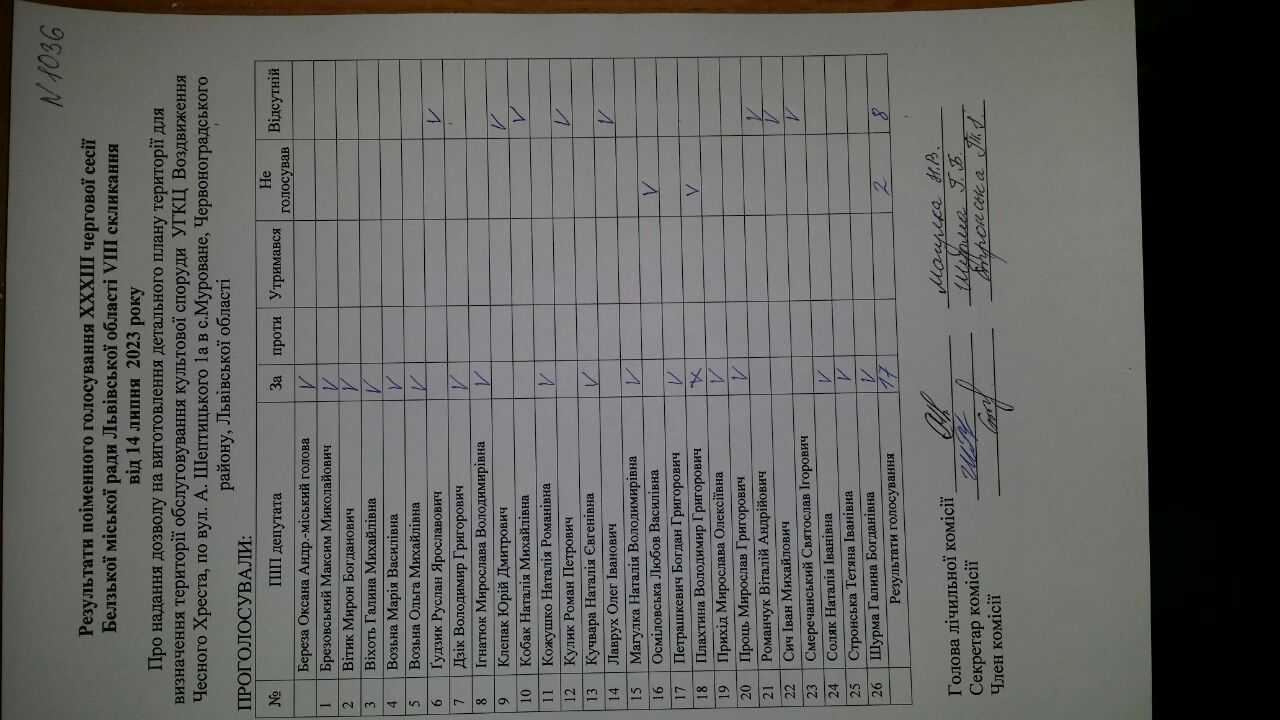 N 1036
Результати поіменного голосування XXXIII чергової сесії
Белзької міської ради Львівської області VIII скликання
від 14 липня 2023 року
Про надання дозволу на виготовлення детального плану території для
визначення території обслуговування культової споруди УГКЦ Воздвиження
Чесного Хреста, по вул. А. Шептицького 1а в с.Муроване, Червоноградського
району, Львівської області
ПРОГОЛОСУВАЛИ:
№ ПІП депутата За проти Утримався Не голосував Відсутній
Береза Оксана Андр.-міський голова V
1 Брезовський Максим Миколайович V
2 Вітик Мирон Богданович V
3 Віхоть Галина Михайлівна V
4 Возьна Марія Василівна V
5 Возьна Ольга Михайлівна V
6 Гудзик Руслан Ярославович V
7 Дзік Володимир Григорович V
8 Ігнатюк Мирослава Володимирівна V
9 Клепак Юрій Дмитрович V
10 Кобак Наталія Михайлівна V
11 Кожушко Наталія Романівна V
12 Кулик Роман Петрович V
13 Кучвара Наталія Євгенівна V
14 Лаврух Олег Іванович V
15 Магулка Наталія Володимирівна V
16 Осміловська Любов Василівна V
17 Петрашкевич Богдан Григорович V
18 Плахтина Володимир Григорович V
19 Прихід Мирослава Олексіївна V
20 Проць Мирослав Григорович V
21 Романчук Віталій Андрійович V
22 Сич Іван Михайлович V
23 Смеречанський Святослав Ігорович
24 Соляк Наталія Іванівна V
25 Стронська Тетяна Іванівна V
26 Шурма Галина Богданівна V
Результати голосування 17 2 8
Голова лічильної комісії Магулка Н.В.
Секретар комісії Шурма Г.Б.
Член комісії Стронська Т.І.